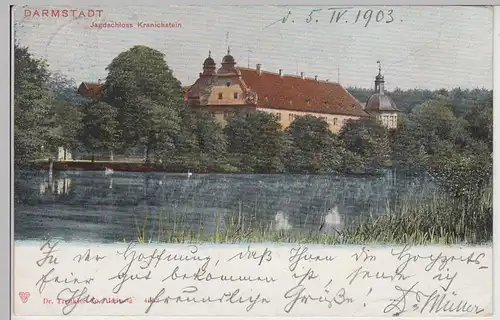 DARMSTADT
Jagdschloss Kranichstein
d. 5. IV. 1903.
In der Hoffnung, daß Ihnen die Hochzeits-
feier gut bekommen ist, sende ich
Ihnen freundliche Grüße! Dr Müller
Dr.